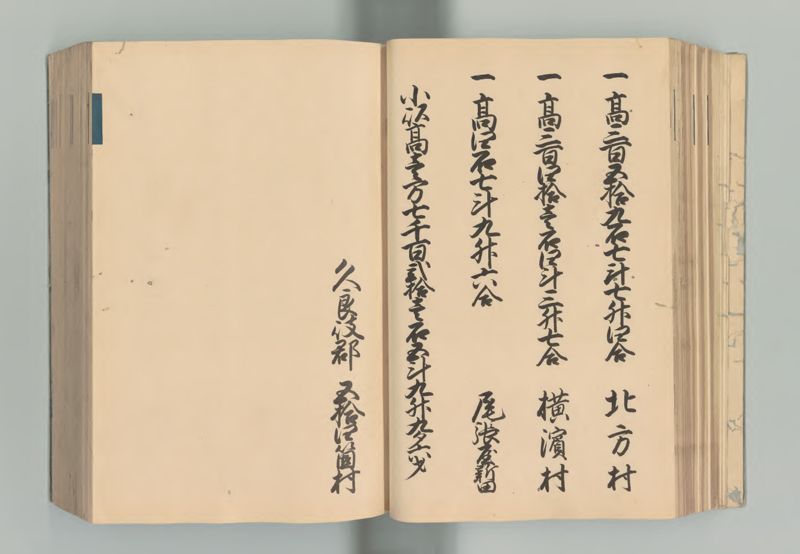 一 高三百五拾九石七斗七升四合 北方村
一 高三百四拾壱石四斗三升七合 横濱村
一 高四石七斗九升六合 尾張屋新田
小以高壱万七千百弐拾壱石五斗九升九夕六才
久良岐郡 五拾四箇村